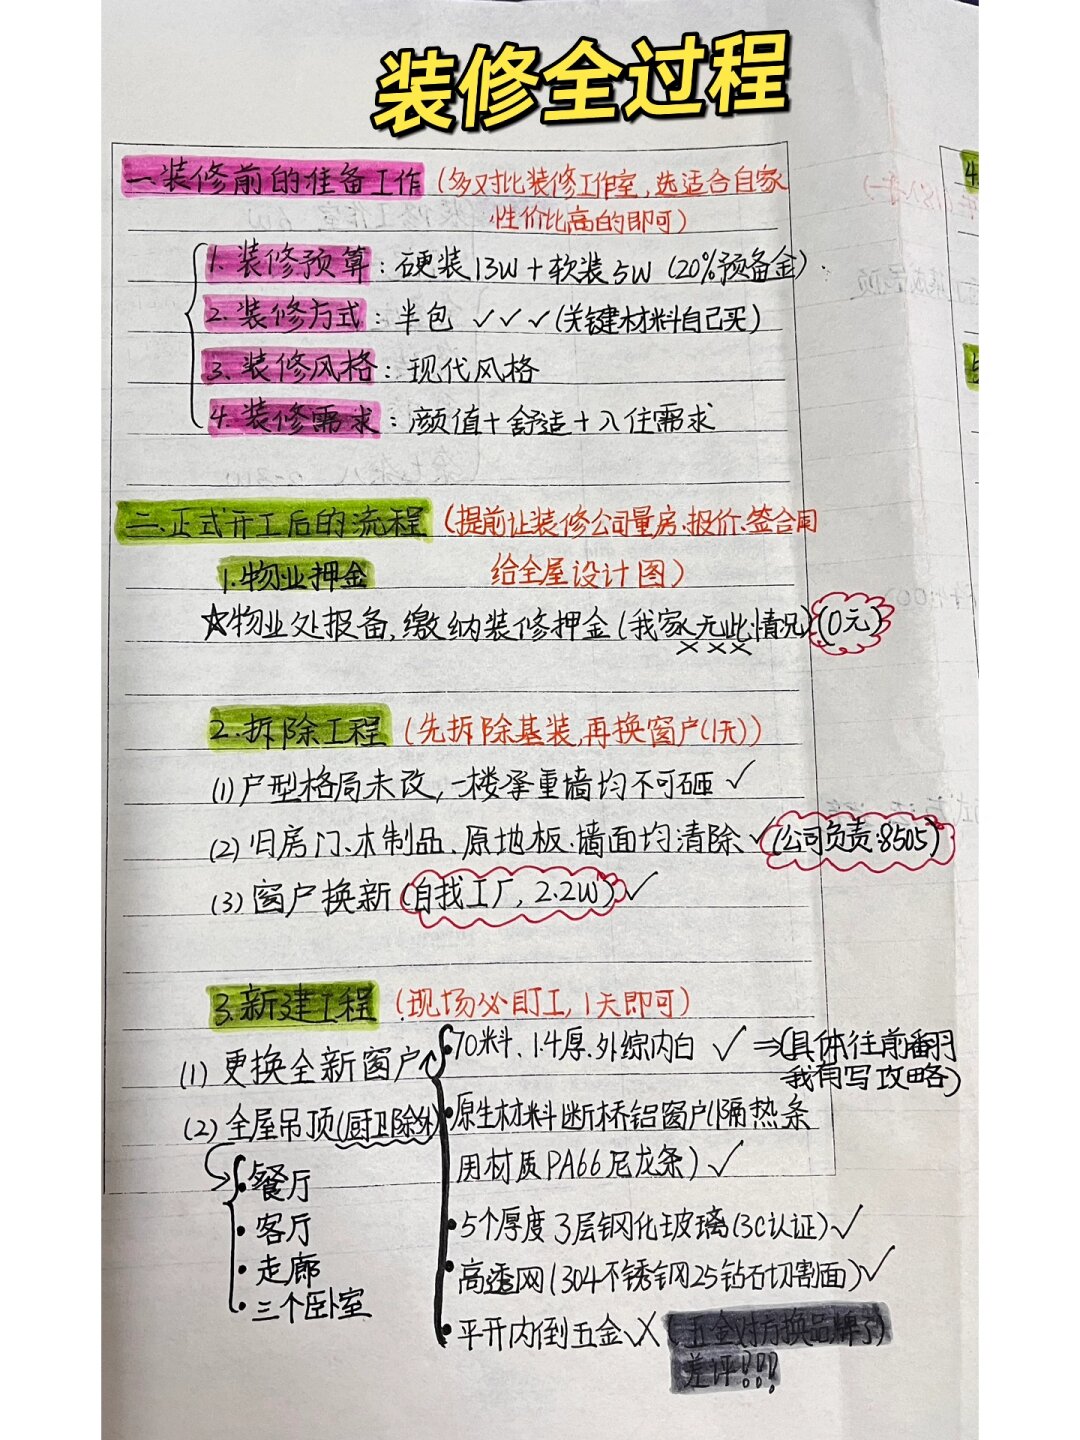 装修全过程
一.装修前的准备工作(多对比装修工作室,选适合自家
性价比高的即可)
1.装修预算:硬装13W+软装5W(20%预备金)
2.装修方式:半包 ✓✓✓(关键材料自己买)
3.装修风格:现代风格
4.装修需求:颜值+舒适+入住需求
二.正式开工后的流程(提前让装修公司量房、报价、签合同
给全屋设计图)
1.物业押金
☆物业处报备,缴纳装修押金(我家无此情况)(0元)
×××
2.拆除工程(先拆除基装,再换窗户(1天))
(1)户型格局未改,一楼承重墙均不可砸✓
(2)旧房门、木制品、原地板、墙面均清除✓(公司负责:8505)
(3)窗户换新(自找工厂,2.2W)✓
3.新建工程(现场必盯工,1天即可)
(1)更换全新窗户
·70料、1.4厚.外综内白 ✓ ⇒(具体往前翻
我有写攻略)
(2)全屋吊顶(厨卫除外)
·原生材料断桥铝窗户(隔热条
用材质PA66尼龙条)✓
·餐厅
·客厅
·走廊
·三个卧室
·5个厚度3层钢化玻璃(3C认证)✓
·高透网(304不锈钢25钻石切割面)✓
·平开内倒五金✓×(五金对方换品牌了
差评!!!